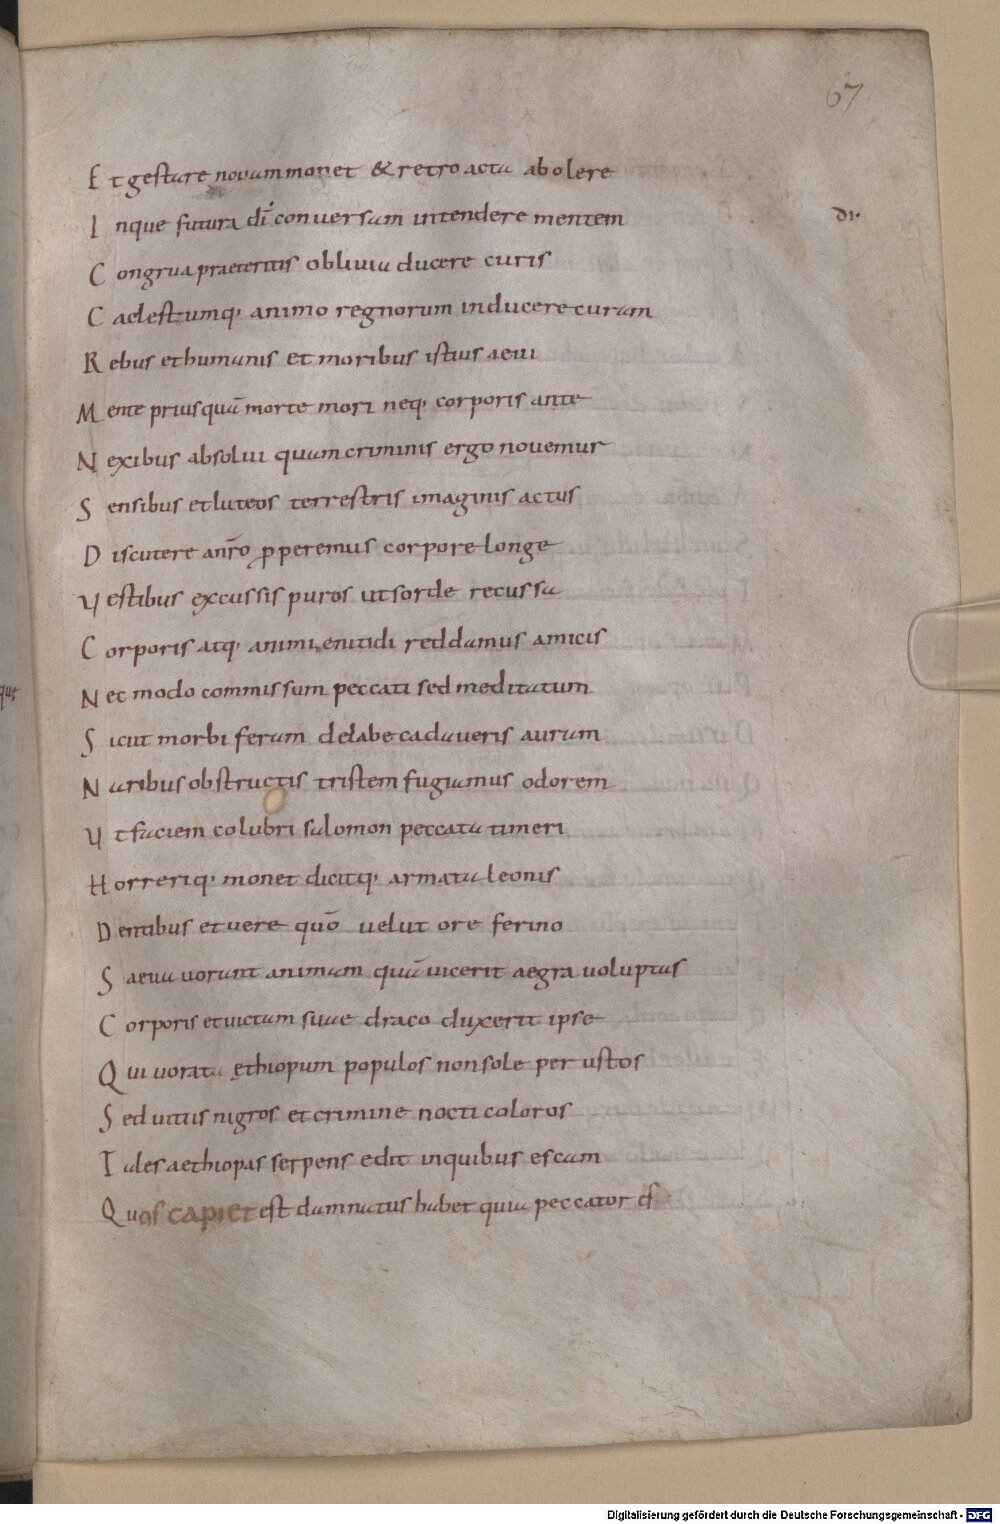 67
Et gestare novum monet & retro acta abolere
Inque futura di conversam intendere mentem
di.
Congrua praeteritis oblivia ducere curis
Caelestumq; animo regnorum inducere curam
Rebus et humanis et moribus istius aevi
Mente priusquā morte mori neq; corporis ante
Nexibus absolvi quam criminis ergo novemur
Sensibus et luteos terrestris imaginis actus
Discutere anr̄o properemus corpore longe
Vestibus excussis puros ut sorde recussa
Corporis atq; animi, enitidi reddamus amicis
Nec modo commissum peccati sed meditatum
que
Sicut morbiferam de labe cadaveris auram
Naribus obstructis tristem fugiamus odorem
Ut faciem colubri salomon peccata timeri
Horreriq; monet dicitq; armata leonis
Dentibus et vere quō velut ore ferino
Saeva vorant animam quā vicerit aegra voluptas
Corporis et victam suae draco duxerit ipse
Qui vorat ęthiopum populos non sole perustos
Sed vitiis nigros et crimine nocti coloros
Tales aethiopas serpens edit in quibus escam
Quos capiet est damnatus habet quia peccator
Digitalisierung gefördert durch die Deutsche Forschungsgemeinschaft - DFG